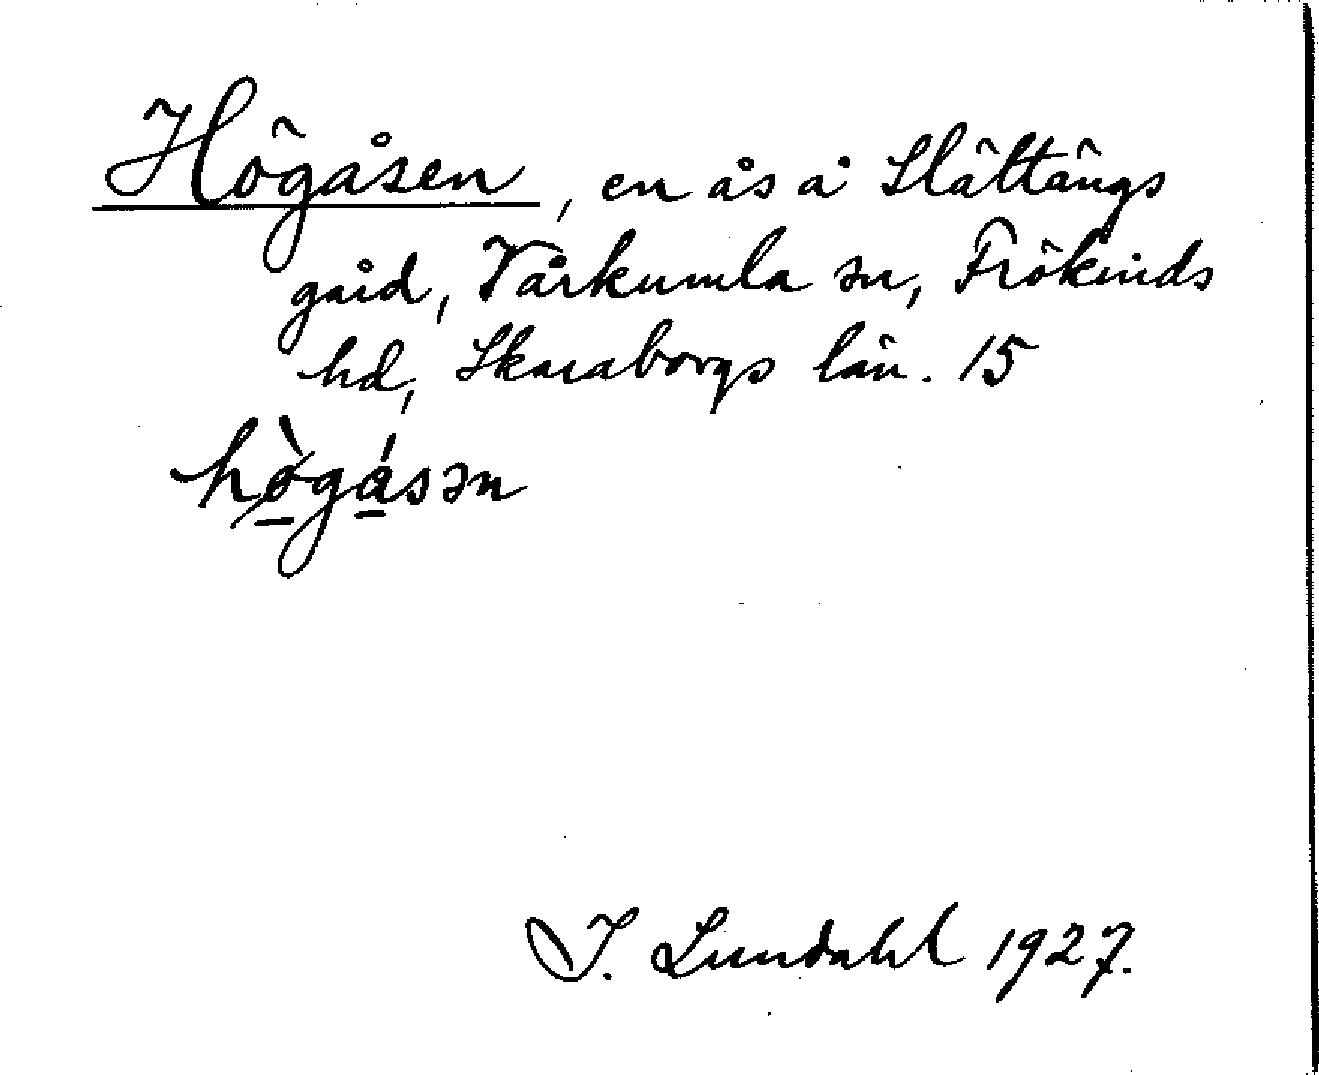 Högåsen, en ås å Slättängs
gård, Vårkumla sn, Frökinds
hd, Skaraborgs län. 15
hø̀gåsən
I. Lundahl 1927.